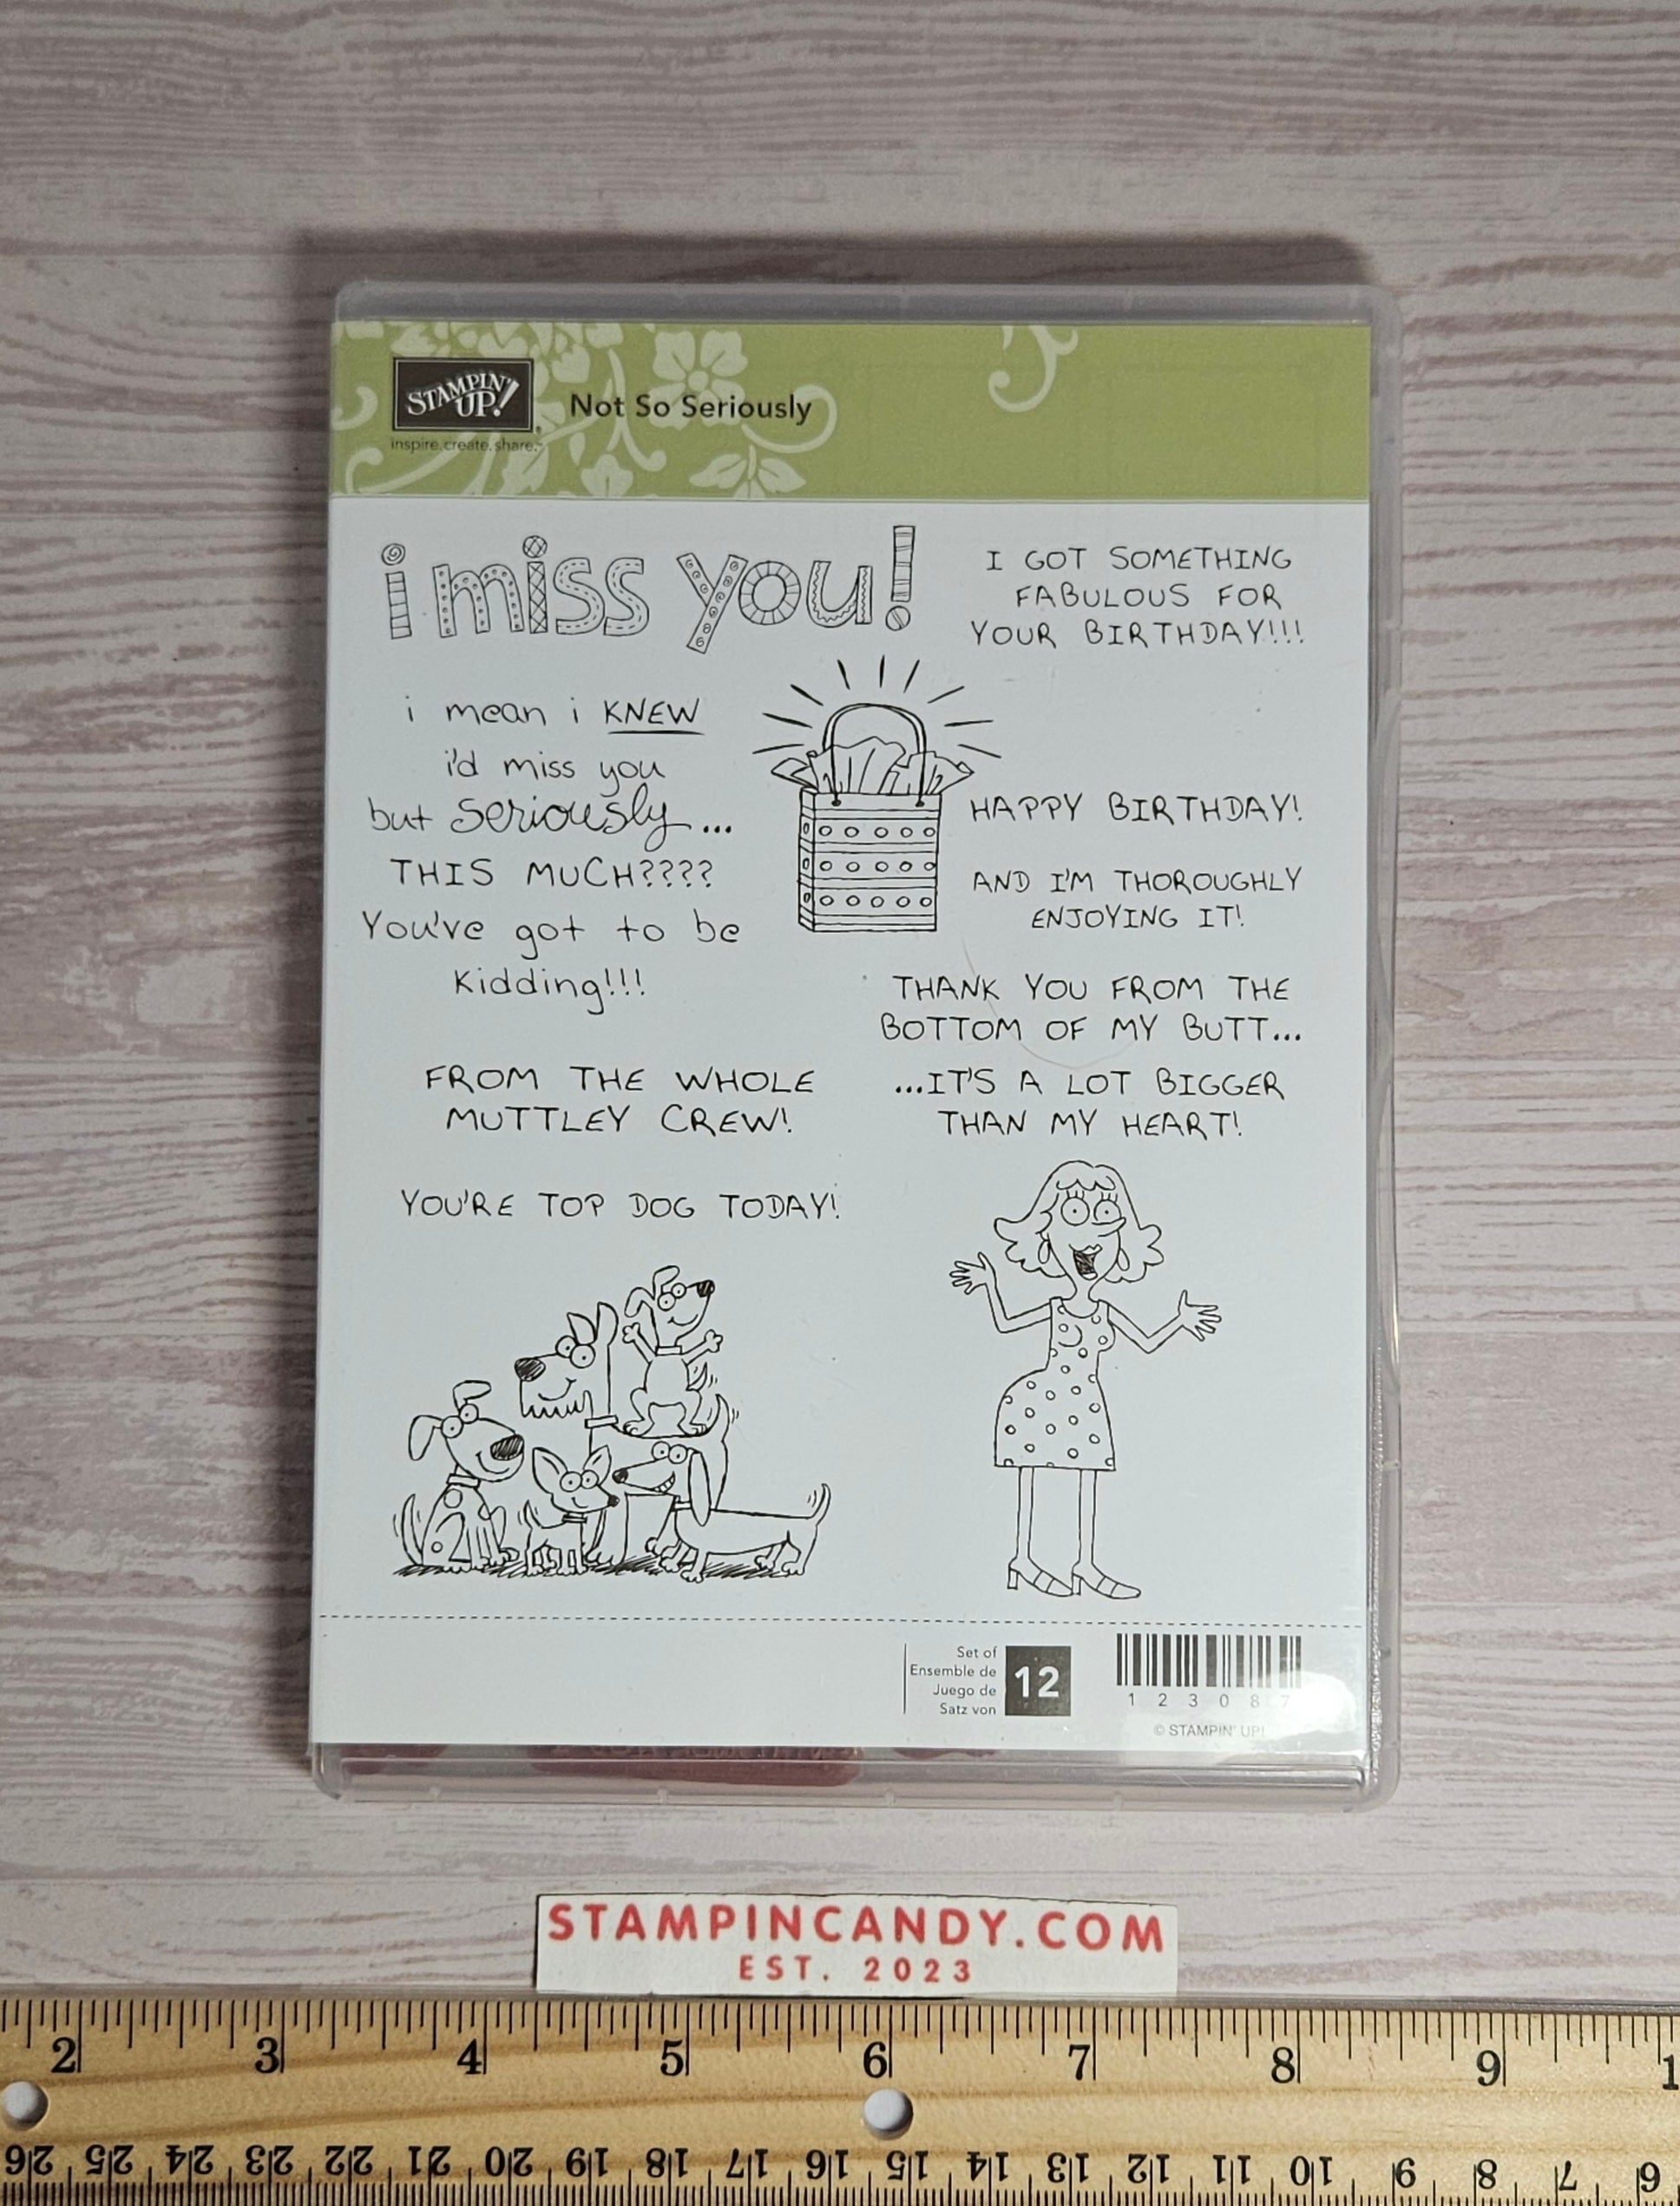 STAMPIN' UP!
inspire.create.share.
Not So Seriously
i miss you!
I GOT SOMETHING
FABULOUS FOR
YOUR BIRTHDAY!!!
i mean i KNEW
i'd miss you
but seriously...
THIS MUCH????
You've got to be
Kidding!!!
HAPPY BIRTHDAY!
AND I'M THOROUGHLY
ENJOYING IT!
THANK YOU FROM THE
BOTTOM OF MY BUTT...
...IT'S A LOT BIGGER
THAN MY HEART!
FROM THE WHOLE
MUTTLEY CREW!
YOU'RE TOP DOG TODAY!
Set of
Ensemble de
Juego de
Satz von
12
123087
© STAMPIN' UP!
STAMPINCANDY.COM
EST. 2023
2 3 4 5 6 7 8 9 1
26 25 24 23 22 21 20 19 18 17 16 15 14 13 12 11 10 9 8 7 6